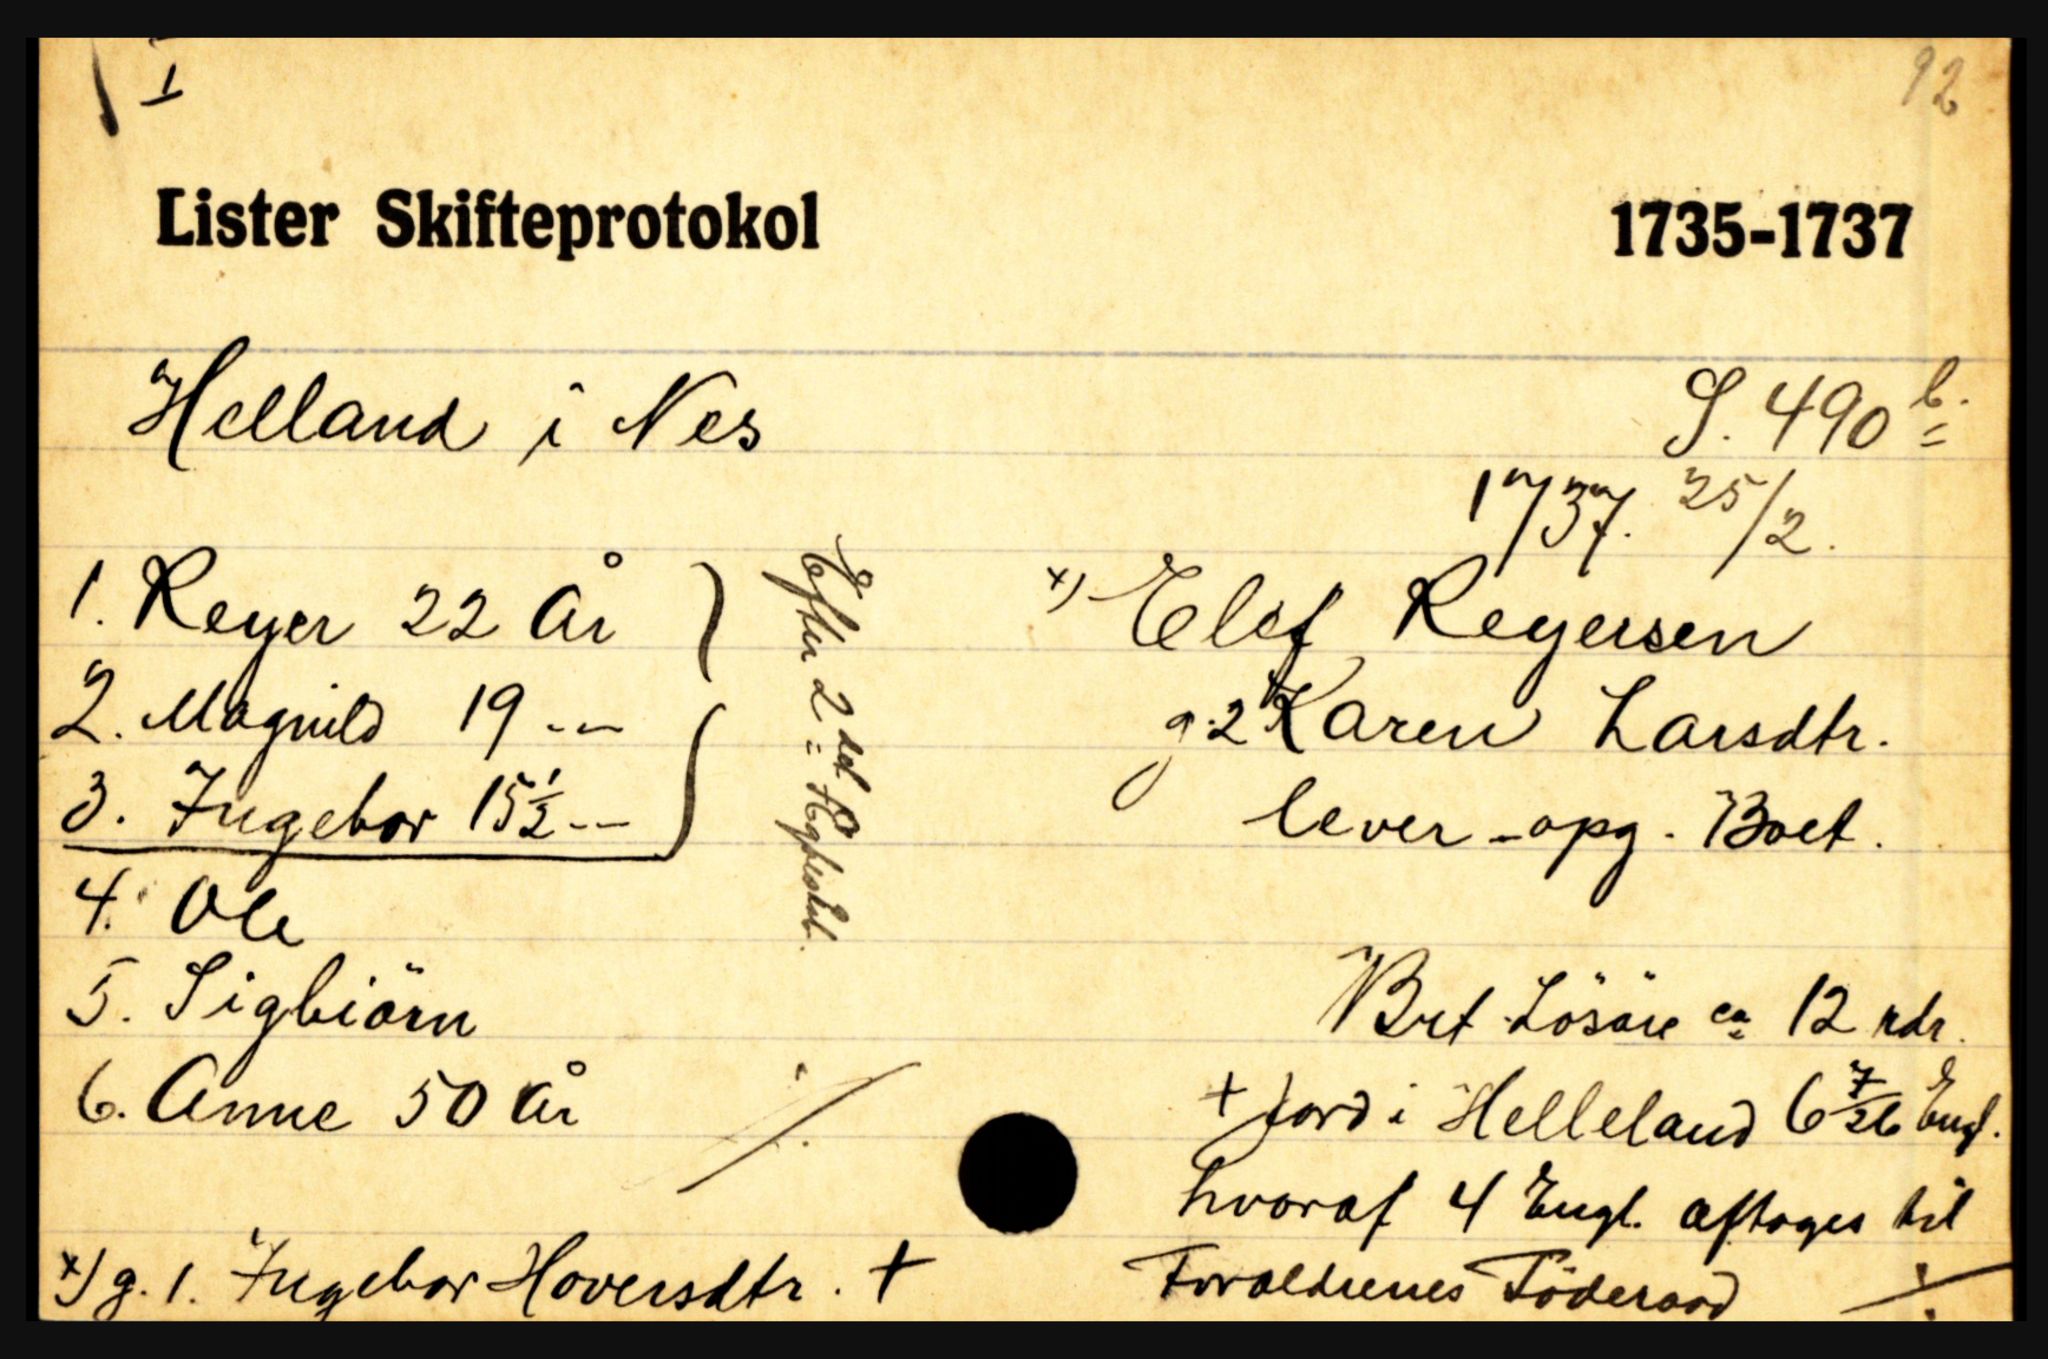 I
92
Lister Skifteprotokol 1735-1737
Helland i Nes
S. 490 b.
1737. 25/2.
1. Reyer 22 År
2. Magnild 19 --
3. Ingebor 15½ --
4. Ole
5. Sigbiörn
6. Anne 50 År
Efter 2det Ægteskab.
x) g. 1. Ingebor Hoversdtr. +
x) Elef Reyersen
g. 2 Karen Larsdtr.
lever - opg. Boet.
Brt. Lösöre ca 12 rdr.
+ Jord i Helleland 6 7/26 Engl.
hvoraf 4 Engl. aftages til
Forældrenes Föderaad